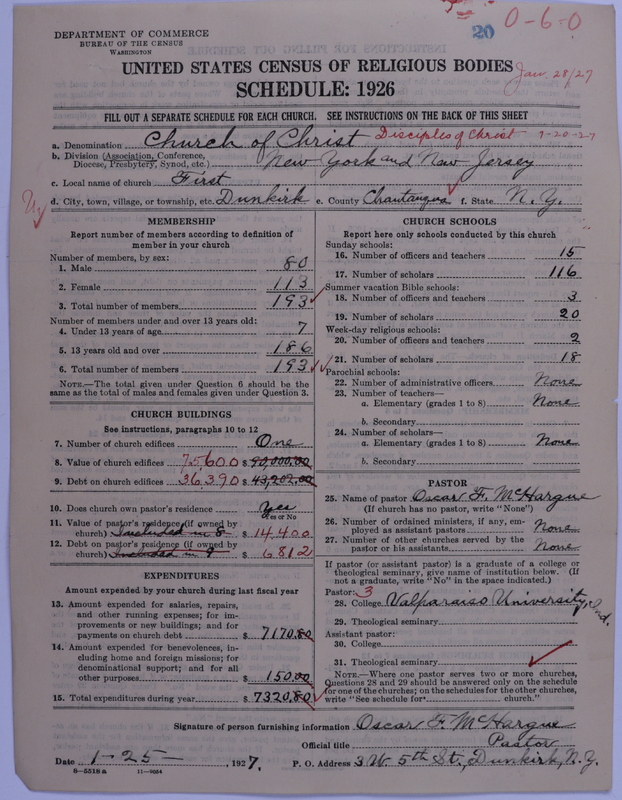 20 0-6-0
DEPARTMENT OF COMMERCE
BUREAU OF THE CENSUS
WASHINGTON
UNITED STATES CENSUS OF RELIGIOUS BODIES
Jan. 28/27
SCHEDULE: 1926
FILL OUT A SEPARATE SCHEDULE FOR EACH CHURCH. SEE INSTRUCTIONS ON THE BACK OF THIS SHEET
a. Denomination Church of Christ Disciples of Christ 9-20-27
b. Division (Association, Conference, Diocese, Presbytery, Synod, etc.) New York and New Jersey
c. Local name of church First
d. City, town, village, or township, etc. Dunkirk e. County Chautauqua f. State N. Y.
MEMBERSHIP
Report number of members according to definition of
member in your church
Number of members, by sex:
1. Male 80
2. Female 113
3. Total number of members 193
Number of members under and over 13 years old:
4. Under 13 years of age 7
5. 13 years old and over 186
6. Total number of members 193
NOTE.—The total given under Question 6 should be
same as the total of males and females given under Question 3.
CHURCH BUILDINGS
See instructions, paragraphs 10 to 12
7. Number of church edifices One
8. Value of church edifices 75600 $ 90,000.00
9. Debt on church edifices 36,390 $ 43,202.00
10. Does church own pastor's residence? Yes
Yes or No
11. Value of pastor's residence (if owned by
church) Included in 8 $ 14,400
12. Debt on pastor's residence (if owned by
church) Included in 9 $ 6812
EXPENDITURES
Amount expended by your church during last fiscal year
13. Amount expended for salaries, repairs,
and other running expenses; for im-
provements or new buildings; and for
payments on church debt $ 7170.80
14. Amount expended for benevolences, in-
cluding home and foreign missions; for
denominational support; and for all
other purposes $ 150.00
15. Total expenditures during year $ 7320.80
CHURCH SCHOOLS
Report here only schools conducted by this church
Sunday schools:
16. Number of officers and teachers 15
17. Number of scholars 116
Summer vacation Bible schools:
18. Number of officers and teachers 3
19. Number of scholars 20
Week-day religious schools:
20. Number of officers and teachers 2
21. Number of scholars 18
Parochial schools:
22. Number of administrative officers None
23. Number of teachers—
a. Elementary (grades 1 to 8) None
b. Secondary
24. Number of scholars—
a. Elementary (grades 1 to 8) None
b. Secondary
PASTOR
25. Name of pastor Oscar F. McHargue
(If church has no pastor, write "None")
26. Number of ordained ministers, if any, em-
ployed as assistant pastors None
27. Number of other churches served by the
pastor or his assistants None
If pastor (or assistant pastor) is a graduate of a college or
theological seminary, give name of institution below. (If
not a graduate, write "No" in the space indicated.)
Pastor: 3
28. College Valparaiso University, Ind.
29. Theological seminary
Assistant pastor:
30. College
31. Theological seminary
NOTE.—Where one pastor serves two or more churches,
Questions 28 and 29 should be answered only on the schedule
for one of the churches; on the schedules for the other churches,
write "See schedule for church."
Signature of person furnishing information Oscar F. McHargue
Official title Pastor
Date 1-25-, 1927. P. O. Address 3 W. 5th St., Dunkirk, N. Y.
8—5518a 11—9054